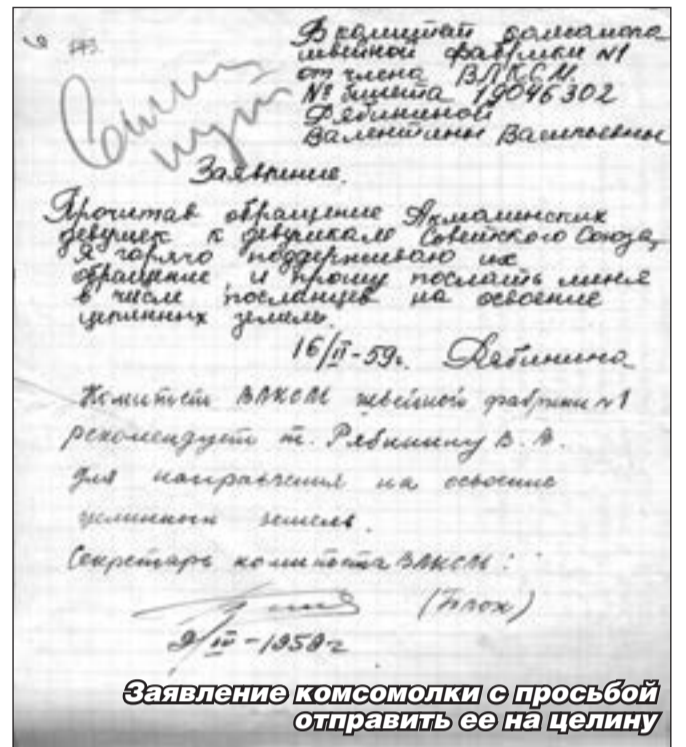 В комитет комсомола
швейной фабрики №1
от члена ВЛКСМ
№ билета 19046302
Рябининой
Валентины Васильевны
Заявление.
Прочитав обращение Акмолинских
девушек к девушкам Советского Союза,
Я горячо поддерживаю их
обращение, и прошу послать меня
в числе посланцев на освоение
целинных земель.
16/II-59г. Рябинина
Комитет ВЛКСМ швейной фабрики №1
рекомендует т. Рябинину В. В.
для направления на освоение
целинных земель.
Секретарь комитета ВЛКСМ:
(Блох)
9/III-1959г
Заявление комсомолки с просьбой
отправить ее на целину